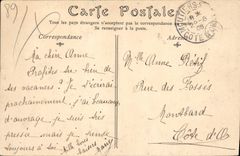 89
Carte Postale
Tous les pays étrangers n'acceptent pas la correspondance
Se renseigner à la poste.
Correspondance
Adresse
CÔTE D'OR
Ma chère Anne
Profites tu bien de
tes vacances? Je t'écrirai
prochainement, j'ai beaucoup
d'ouvrage, je suis très
pressée mais je pense
toujours à toi.
Mille bons
baisers
Melle Anne
Rue des Fossés
Montbard
Côte d'Or